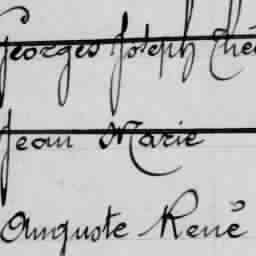 Georges Joseph Thé
Jean Marie
Auguste René